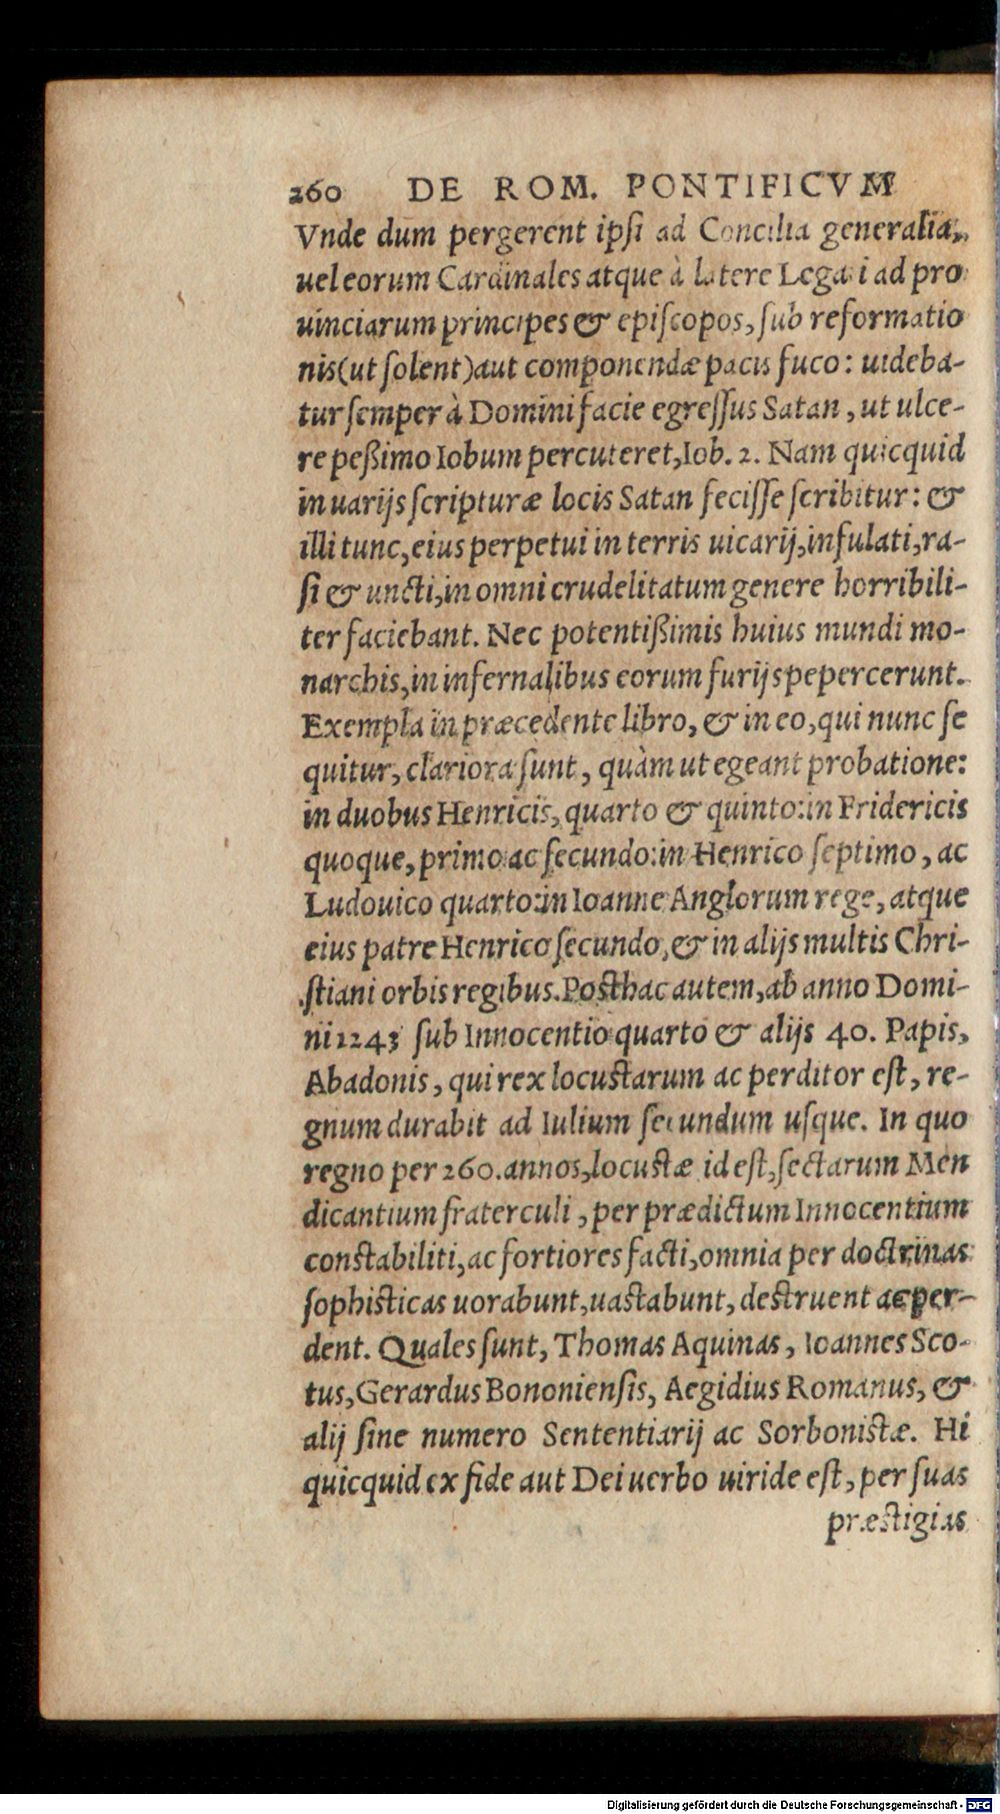 260 DE ROM. PONTIFICVM
Vnde dum pergerent ipſi ad Concilia generalia,
uel eorum Cardinales atque à latere Legati ad pro
uinciarum principes & epiſcopos, ſub reformatio
nis (ut ſolent) aut componendæ pacis fuco: uideba-
tur ſemper à Domini facie egreſſus Satan, ut ulce-
re peßimo Iobum percuteret, Iob. 2. Nam quicquid
in uarijs ſcripturæ locis Satan feciſſe ſcribitur: &
illi tunc, eius perpetui in terris uicarij, infulati, ra-
ſi & uncti, in omni crudelitatum genere horribili-
ter faciebant. Nec potentißimis huius mundi mo-
narchis, in infernalibus eorum furijs pepercerunt.
Exempla in præcedente libro, & in eo, qui nunc ſe
quitur, clariora ſunt, quàm ut egeant probatione:
in duobus Henricis, quarto & quinto: in Fridericis
quoque, primo ac ſecundo: in Henrico ſeptimo, ac
Ludouico quarto: in Ioanne Anglorum rege, atque
eius patre Henrico ſecundo, & in alijs multis Chri-
ſtiani orbis regibus. Posthac autem, ab anno Domi-
ni 1243 ſub Innocentio quarto & alijs 40. Papis,
Abadonis, qui rex locustarum ac perditor eſt, re-
gnum durabit ad Iulium ſecundum uſque. In quo
regno per 260. annos, locustæ id eſt, ſectarum Men
dicantium fraterculi, per prædictum Innocentium
constabiliti, ac fortiores facti, omnia per doctrinas
ſophisticas uorabunt, uastabunt, destruent ac per-
dent. Quales ſunt, Thomas Aquinas, Ioannes Sco-
tus, Gerardus Bononienſis, Aegidius Romanus, &
alij ſine numero Sententiarij ac Sorbonistæ. Hi
quicquid ex fide aut Dei uerbo uiride eſt, per ſuas
præstigias
Digitalisierung gefördert durch die Deutsche Forschungsgemeinschaft - DFG